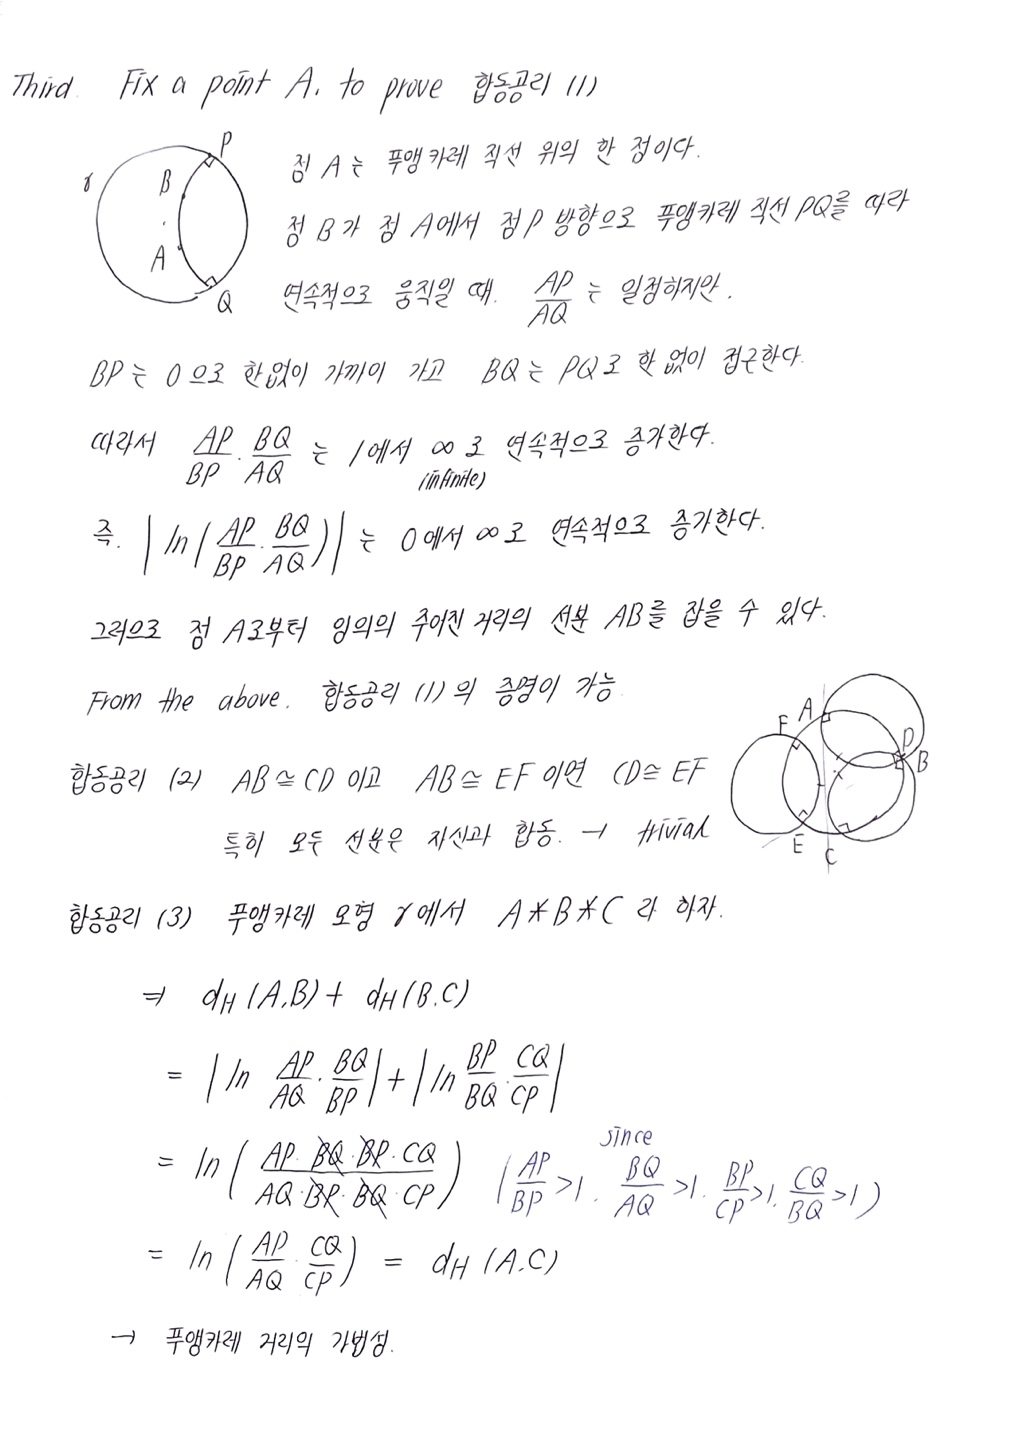 Third. Fix a point A. to prove 합동공리 (1)
P
γ
B
A
Q
점 A는 푸앵카레 직선 위의 한 점이다.
점 B가 점 A에서 점 P 방향으로 푸앵카레 직선 PQ를 따라
연속적으로 움직일 때. AP/AQ 는 일정하지만.
BP는 0으로 한없이 가까이 가고 BQ는 PQ로 한 없이 접근한다.
따라서 AP/BP · BQ/AQ 는 1에서 ∞로 연속적으로 증가한다.
(infinite)
즉. |ln(AP/BP · BQ/AQ)| 는 0에서 ∞로 연속적으로 증가한다.
그러므로 점 A로부터 임의의 주어진 거리의 선분 AB를 잡을 수 있다.
From the above. 합동공리 (1)의 증명이 가능
합동공리 (2) AB≅CD 이고 AB≅EF 이면 CD≅EF
특히 모두 선분은 자신과 합동. → trivial
F
A
D
B
E
C
합동공리 (3) 푸앵카레 모형 γ에서 A*B*C 라 하자.
⇒ dH(A,B) + dH(B.C)
= |ln AP/AQ · BQ/BP| + |ln BP/BQ · CQ/CP|
= ln(AP·BQ·BP·CQ / AQ·BP·BQ·CP) (AP/BP >1. BQ/AQ >1. BP/CP >1. CQ/BQ >1)
since
= ln(AP/AQ · CQ/CP) = dH(A.C)
→ 푸앵카레 거리의 가법성.